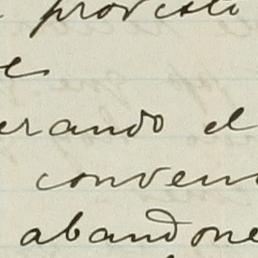 provesti
e
erando el
conven
abandone